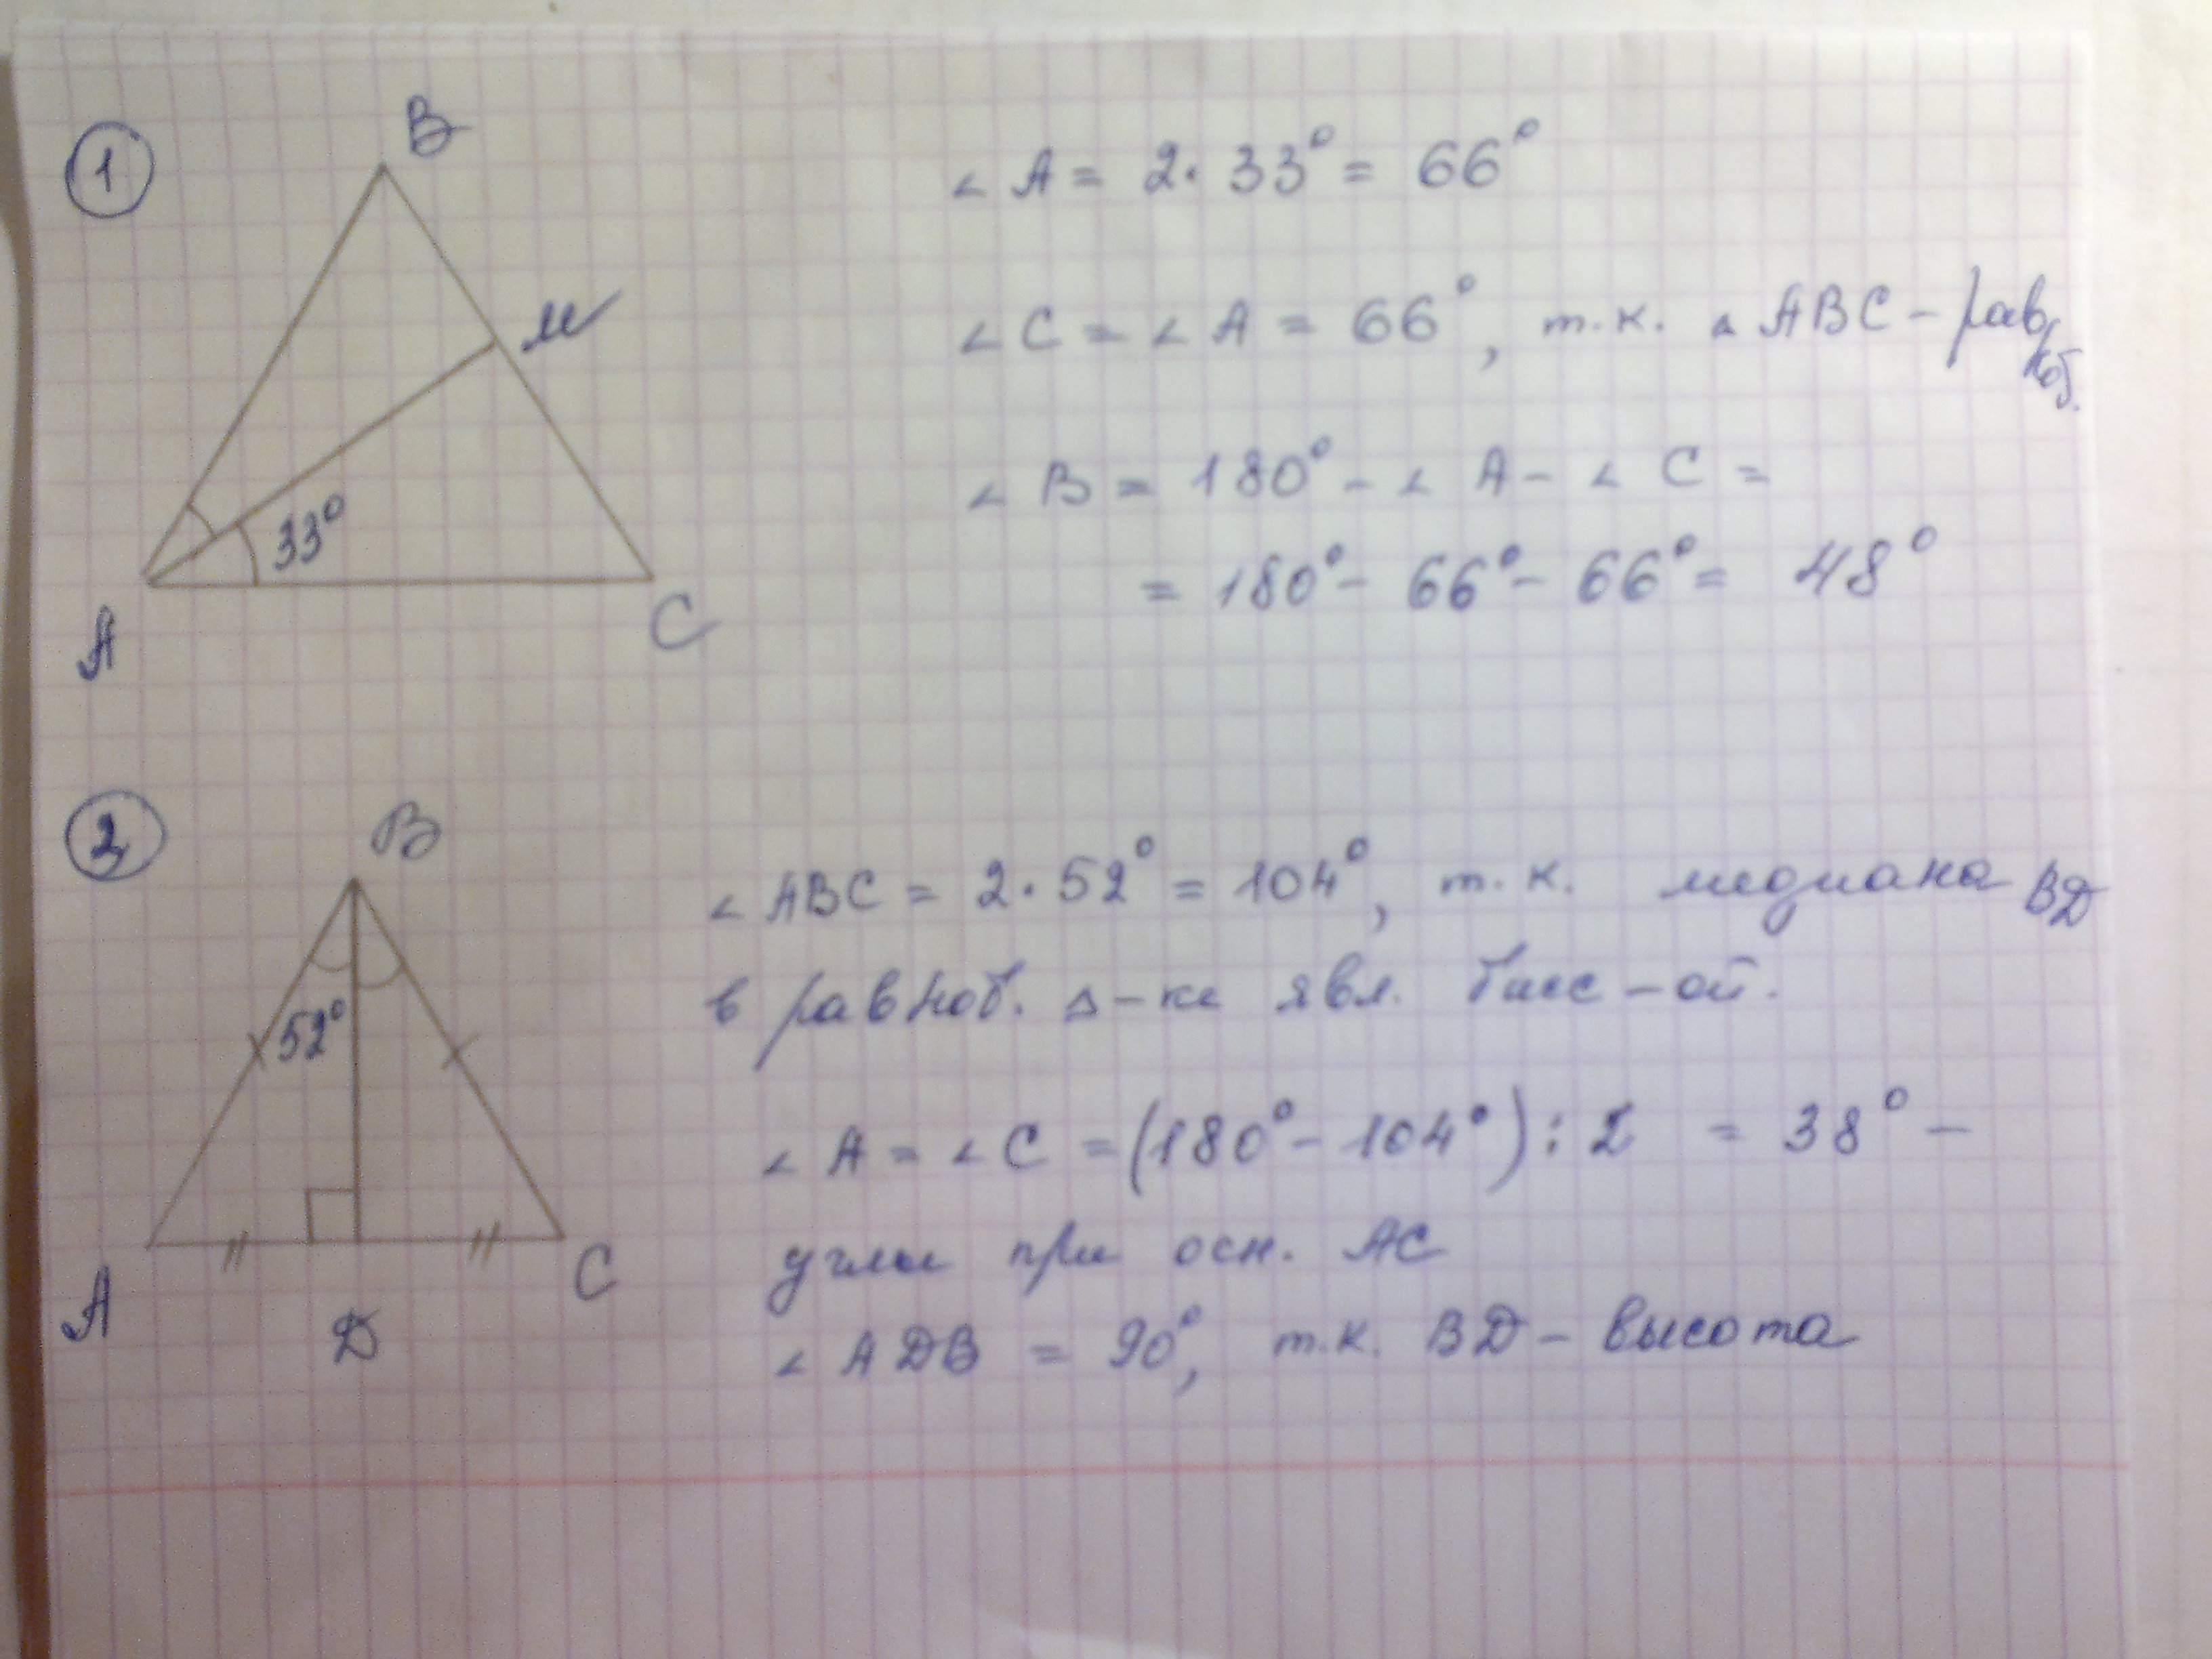 1
B
M
33°
A
C
∠ A = 2 · 33° = 66°
∠ C = ∠ A = 66°, т.к. △ ABC – равноб.
∠ B = 180° – ∠ A – ∠ C =
= 180° – 66° – 66° = 48°
2
B
52°
A
C
D
∠ ABC = 2 · 52° = 104°, т.к. медиана BD
в равноб. △-ке явл. бисс-ой.
∠ A = ∠ C = (180° – 104°) : 2 = 38° –
углы при осн. AC
∠ ADB = 90°, т.к. BD – высота